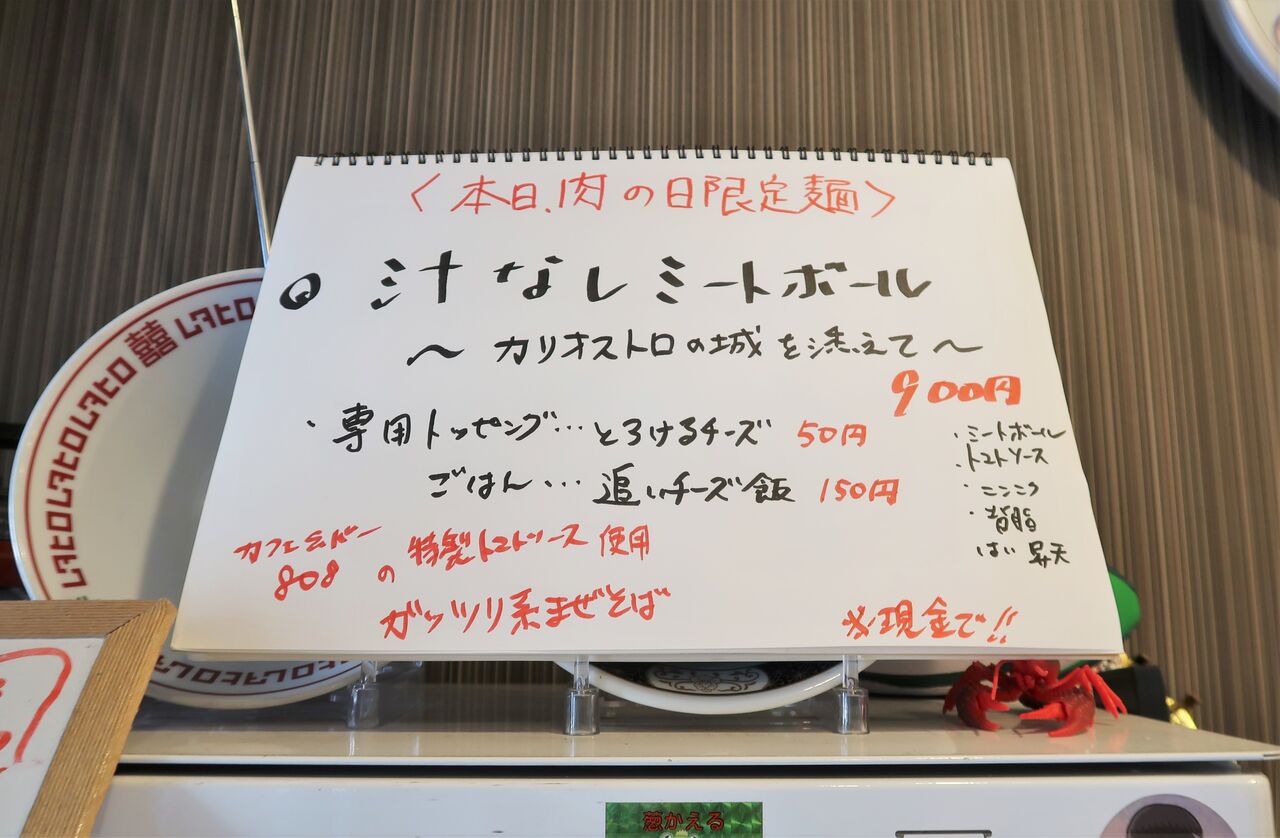 〈本日、肉の日限定麺〉
汁なしミートボール
〜カリオストロの城を添えて〜
900円
・専用トッピング…とろけるチーズ 50円
ごはん…追いチーズ飯 150円
・ミートボール
・トマトソース
・ニンニク
・背脂
はい昇天
カフェ&バー
808 の 特製トマトソース使用
ガッツリ系まぜそば
※現金で!!
囍
葱かえる